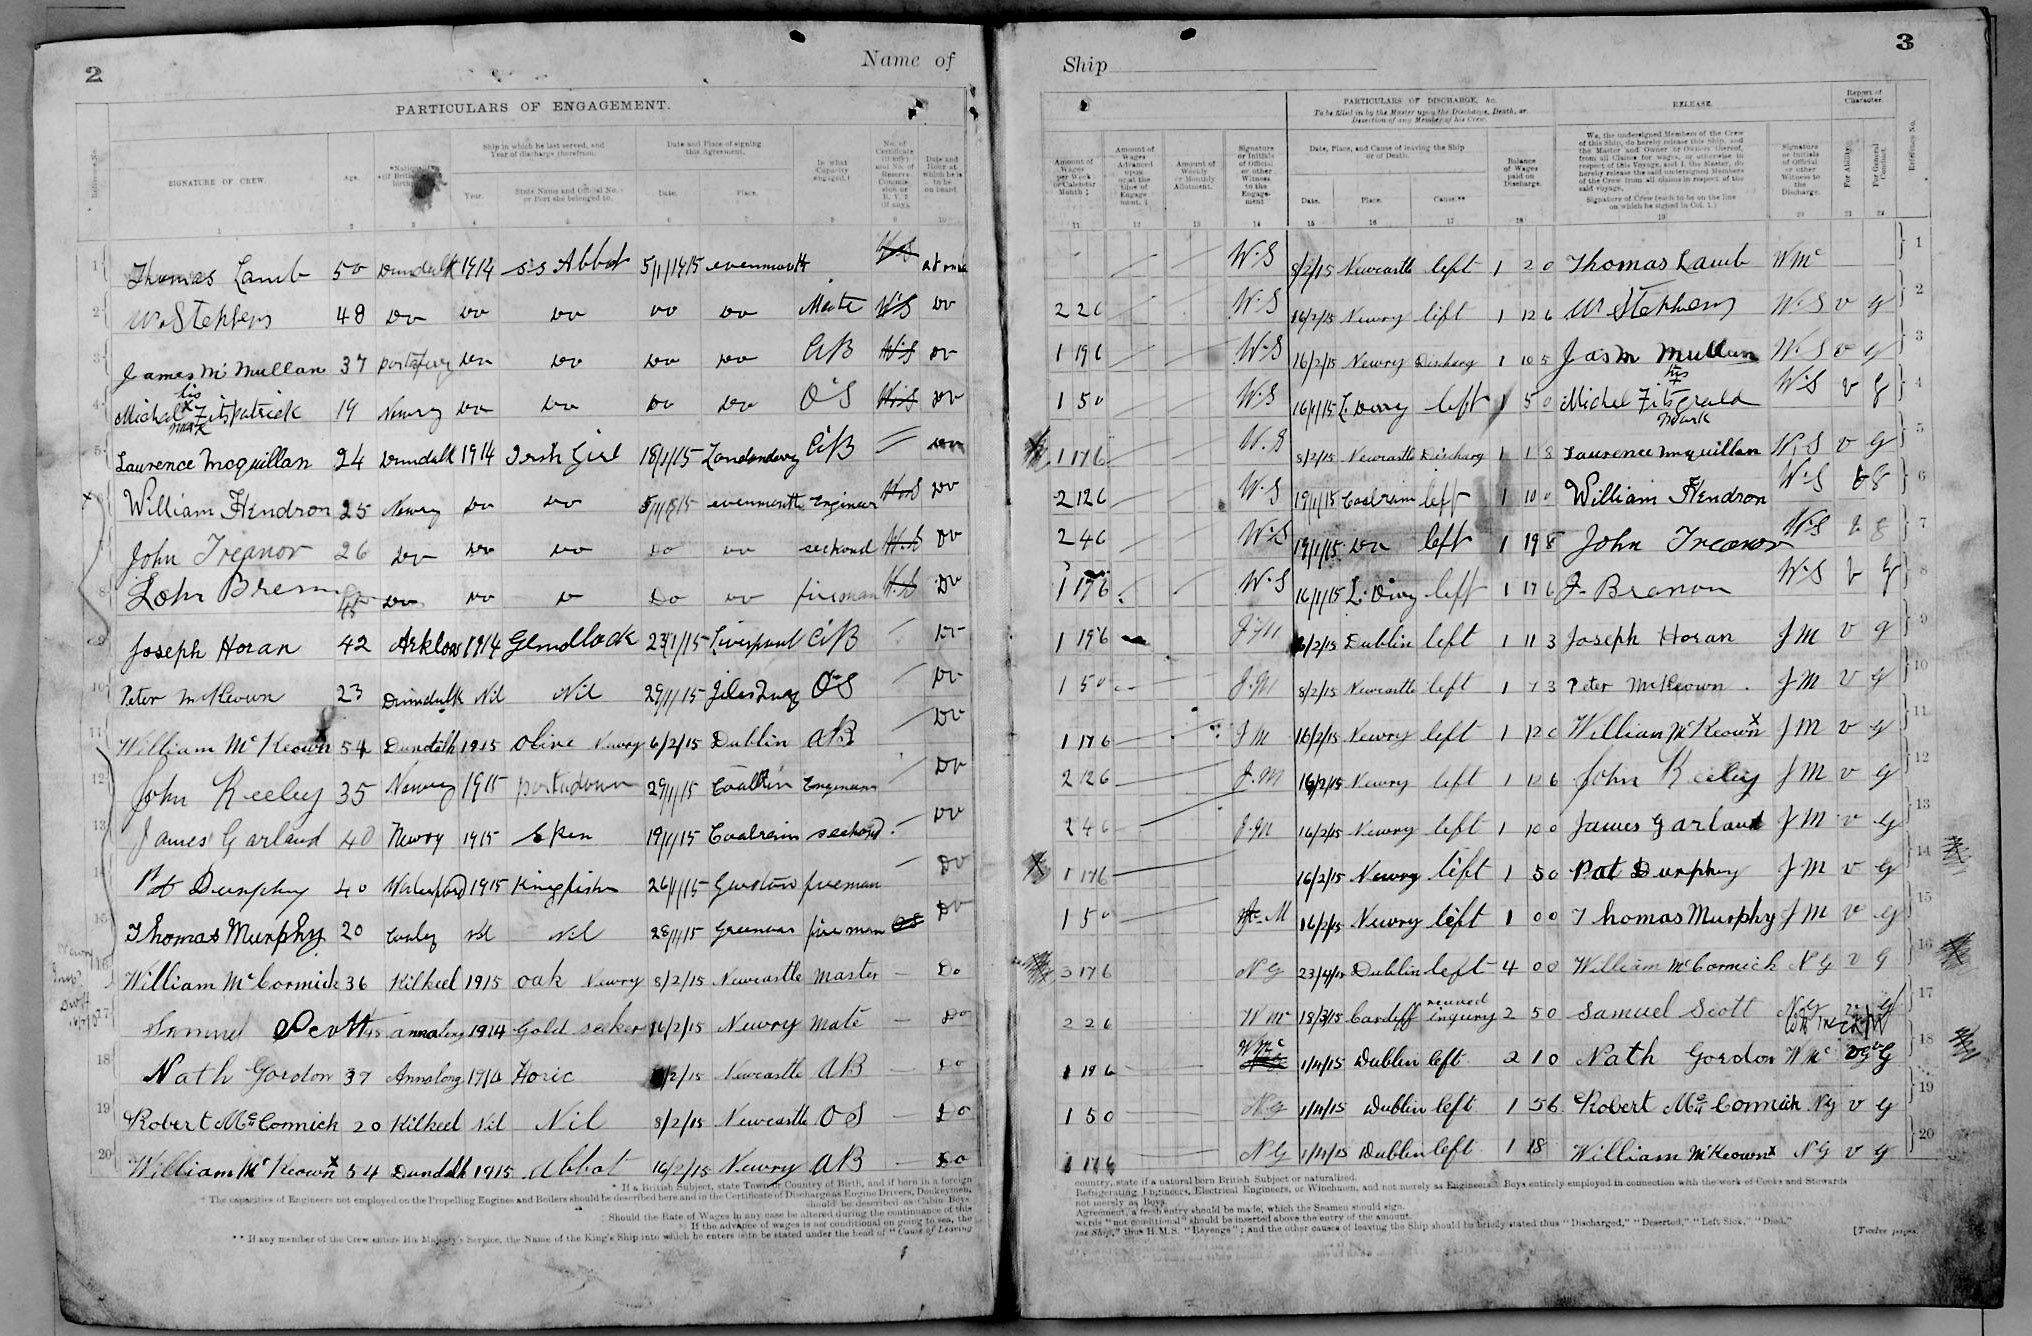 2
Name of
PARTICULARS OF ENGAGEMENT.
SIGNATURE OF CREW.
Age.
Ship in which he last served, and Year of discharge therefrom.
Year.
State Name and Official No. or Port she belonged to.
Date and Place of signing this Agreement.
Date.
Place.
In what Capacity engaged.†
Date and Hour at which he is to be on board.
1 2 3 4 5 6 7 8 9 10
1 Thomas Lamb 50 Dundalk 1914 ss Abbot 5/1/1915 W.S
2 W. Stephens 48 Do Do Do Do Do Mate W.S Do
3 James Mc Mullan 37 Do Do Do Do AB W.S Do
4 Michal his x mark Fitspatrick 19 Newry Do Do Do Do OS W.S Do
5 Laurence Mcquillan 24 Dundalk 1914 Irish Girl 18/1/15 AB
6 William Hendron 25 Newry Do Do Engineer W.S Do
7 John Treanor 26 Do Do Do Do Do seckond W.S Do
8 Do Do Do Do fireman W.S Do
9 Joseph Horan 42 Arklow 1914 23/1/15 Liverpool AB
10 Peter McKeown 23 Dundalk Nil Nil 29/1/15 OS Do
11 William McKeown x 54 Dundalk 1915 Olive Newry 6/2/15 Dublin AB Do
12 John Keeley 35 Newry 1915 portadown 29/1/15 Do
13 James Garland 40 Newry 1915 19/1/15 Coalrain seckond Do
14 Pat Dunphy 40 Waterford 1915 Kingfisher 26/1/15 Garston fireman Do
15 Thomas Murphy 20 Nil Nil 28/1/15 fireman OS Do
16 William McCormick 36 Kilkeel 1915 oak Newry 8/2/15 Newcastle Master — Do
17 Samuel Scott annalong 1914 Gold seeker 16/2/15 Newry Mate — Do
18 Nath Gordon 39 Annalong 1914 /2/15 Newcastle AB — Do
19 Robert McCormick 20 Kilkeel Nil Nil 8/2/15 Newcastle OS — Do
20 William McKeown x 54 Dundalk 1915 Abbot 16/2/15 Newry AB — Do
* If a British Subject, state Town or Country of Birth, and if born in a foreign
† The capacities of Engineers not employed on the Propelling Engines and Boilers should be described here and in the Certificate of Discharge as Engine Drivers, Donkeymen,
should be described as Cabin Boys
‡ Should the Rate of Wages in any case be altered during the continuance of this
§ If the advance of wages is not conditional on going to sea, the
** If any member of the Crew enters His Majesty's Service, the Name of the King's Ship into which he enters is to be stated under the head of "Cause of Leaving
3
Ship
PARTICULARS OF DISCHARGE, &c.
To be filled in by the Master upon the Discharge, Death, or Desertion of any Member of his Crew.
RELEASE.
Report of Character.
Amount of Wages per Week or Calendar Month ‡
Amount of Wages Advanced upon or at the time of Engagement. §
Amount of Weekly or Monthly Allotment.
Signature or Initials of Official or other Witness to the Engagement
Date, Place, and Cause of leaving the Ship or of Death.
Date. Place. Cause **
Balance of Wages paid on Discharge.
We, the undersigned Members of the Crew of this Ship, do hereby release this Ship, and the Master and Owner or Owners thereof, from all Claims for wages, or otherwise in respect of this Voyage, and I, the Master, do hereby release the said undersigned Members of the Crew from all claims in respect of the said voyage.
Signature of Crew (each to be on the line on which he signed in Col. 1.)
Signature or Initials of Official or other Witness to the Discharge.
For Ability.
For General Conduct.
Reference No.
11 12 13 14 15 16 17 18 19 20 21 22
W.S 8/2/15 Newcastle left 1 2 0 Thomas Lamb W Mc 1
2 2 6 W.S 16/2/15 Newry left 1 12 6 W Stephens W.S v g 2
1 19 6 W.S 16/2/15 Newry Discharg 1 10 5 Jas M Mullan W.S v g 3
1 5 0 W.S 16/1/15 L. Derry left 1 5 0 Michel his x mark Fitsgrald W.S v g 4
1 17 6 W.S 8/2/15 Newcastle Discharg 1 1 8 Laurence Mcquillan W.S v g 5
2 12 6 W.S 19/1/15 Coalraim left 1 10 0 William Hendron W.S v g 6
2 4 6 W.S 19/1/15 Do left 1 19 8 John Treanor W.S v g 7
1 17 6 W.S 16/1/15 L. Derry left 1 17 6 J. Brenon W.S v g 8
1 19 6 J M 6/2/15 Dublin left 1 11 3 Joseph Horan J M v g 9
1 5 0 J.M 8/2/15 Newcastle left 1 7 3 Peter McKeown J M v g 10
1 17 6 J M 16/2/15 Newry left 1 12 6 William McKeown x J M v g 11
2 12 6 J.M 16/2/15 Newry left 1 12 6 John Keeley J M v g 12
2 4 6 J.M 16/2/15 Newry left 1 10 0 James Garland J M v g 13
1 17 6 16/2/15 Newry left 1 5 0 Pat Dunphy J M v g 14
1 5 0 J. M 16/2/15 Newry left 1 0 0 Thomas Murphy J M v g 15
3 17 6 N G 23/4/15 Dublin left 4 0 0 William McCormick N G v g 16
2 2 6 W Mc 18/3/15 Cardiff inquiry 2 5 0 Samuel Scott 17
1 19 6 W Mc 1/4/15 Dublin left 2 1 0 Nath Gordon W Mc v G 18
1 5 0 N G 1/4/15 Dublin left 1 5 6 Robert McCormick N G v g 19
1 17 6 N G 1/4/15 Dublin left 1 18 William McKeown x N G v g 20
country, state if a natural born British Subject or naturalized.
Refrigerating Engineers, Electrical Engineers, or Winchmen, and not merely as Engineers. Boys entirely employed in connection with the work of Cooks and Stewards
not merely as Boys.
Agreement, a fresh entry should be made, which the Seamen should sign.
words "not conditional" should be inserted above the entry of the amount.
the Ship," thus H.M.S. "Revenge"; and the other causes of leaving the Ship should be briefly stated thus "Discharged," "Deserted," "Left Sick," "Died."
[Twelve pages.